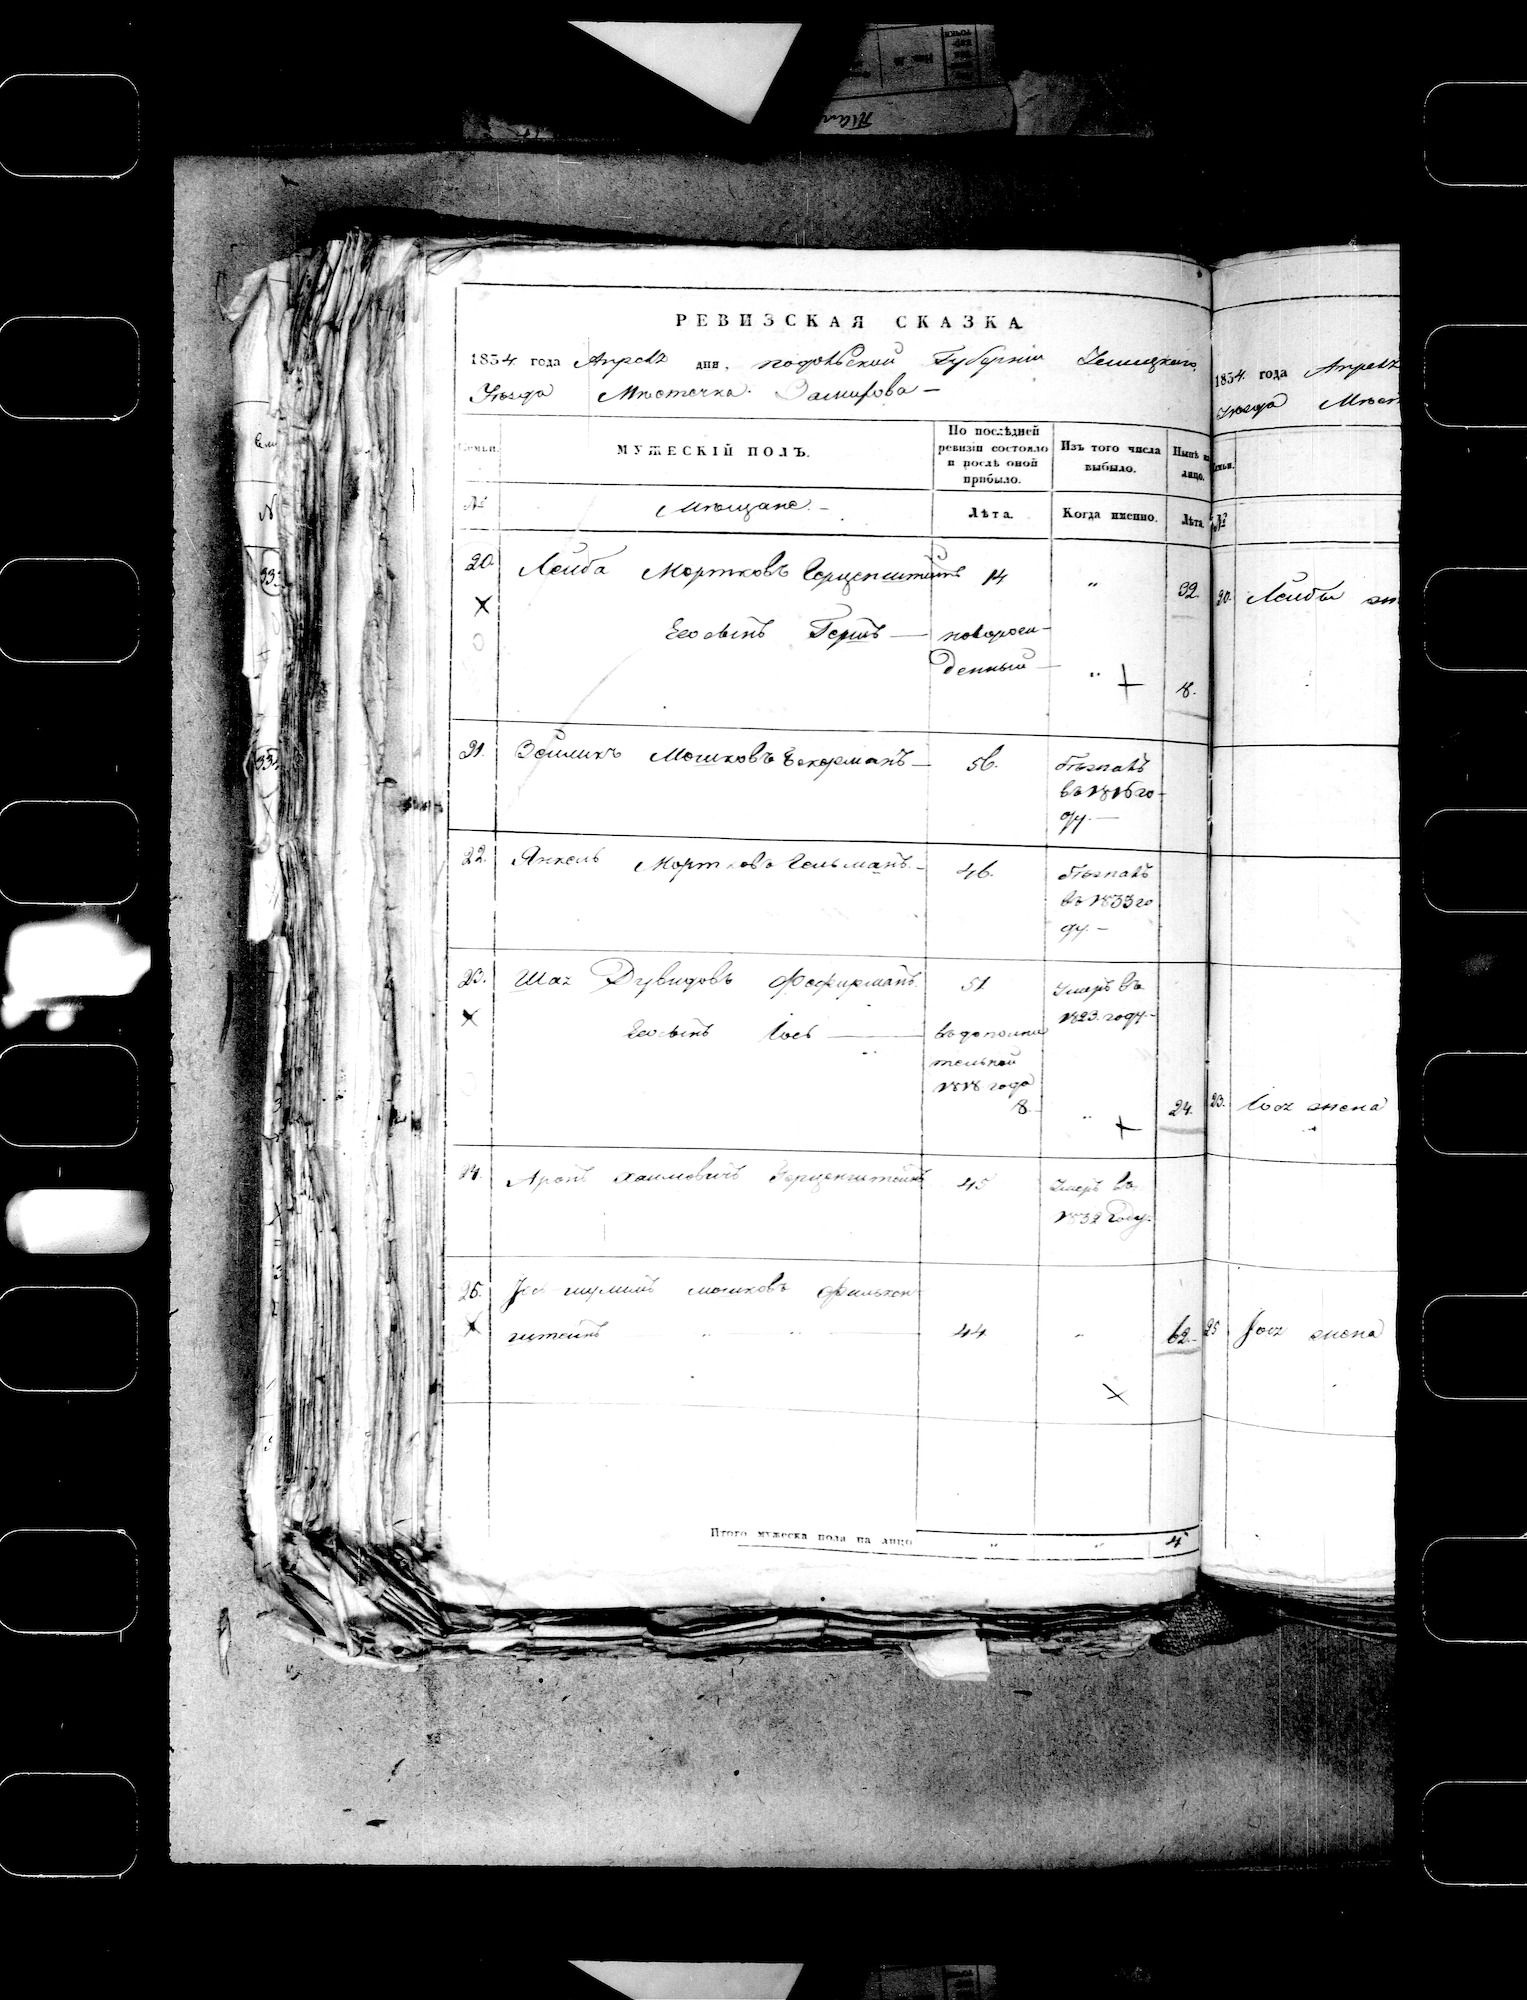 РЕВИЗСКАЯ СКАЗКА
1834 года Апреля дня, подольской Губернии Ушицкого
Уѣзда Мѣстечка Замихова —
Семьи. МУЖЕСКІЙ ПОЛЪ. По послѣдней ревизіи состояло и послѣ оной прибыло. Изъ того числа выбыло. Нынѣ на лицо.
№ Мещане. — Лѣта. Когда именно. Лѣта.
20. Лейба Мортковъ Герценштейнъ 14 " 32.
Его сынъ Гершъ — новорож-
денный — " 8.
21. Зейликъ Мошковъ — 56. бѣжалъ
въ 1816 го-
ду. —
22. Янкель Мортковъ Гельманъ. — 46. бѣжалъ
въ 1833 го
ду. —
23. Шая Дувидовъ 51 Умеръ въ
1823. году —
Его сынъ Іось — въ дополни
тельной
1818 года
8. " 24.
24. Аронъ Хаимовичъ Герценштейнъ 45 Умеръ въ
1832 году.
25. Мошковъ
штейнъ " " 44 " 62.
Итого мужеска пола на лицо " " 4
1834 года Апреля
Уѣзда Мѣст
Семьи.
№
20. Лейбы
23. Іося жена
25 Іося жена